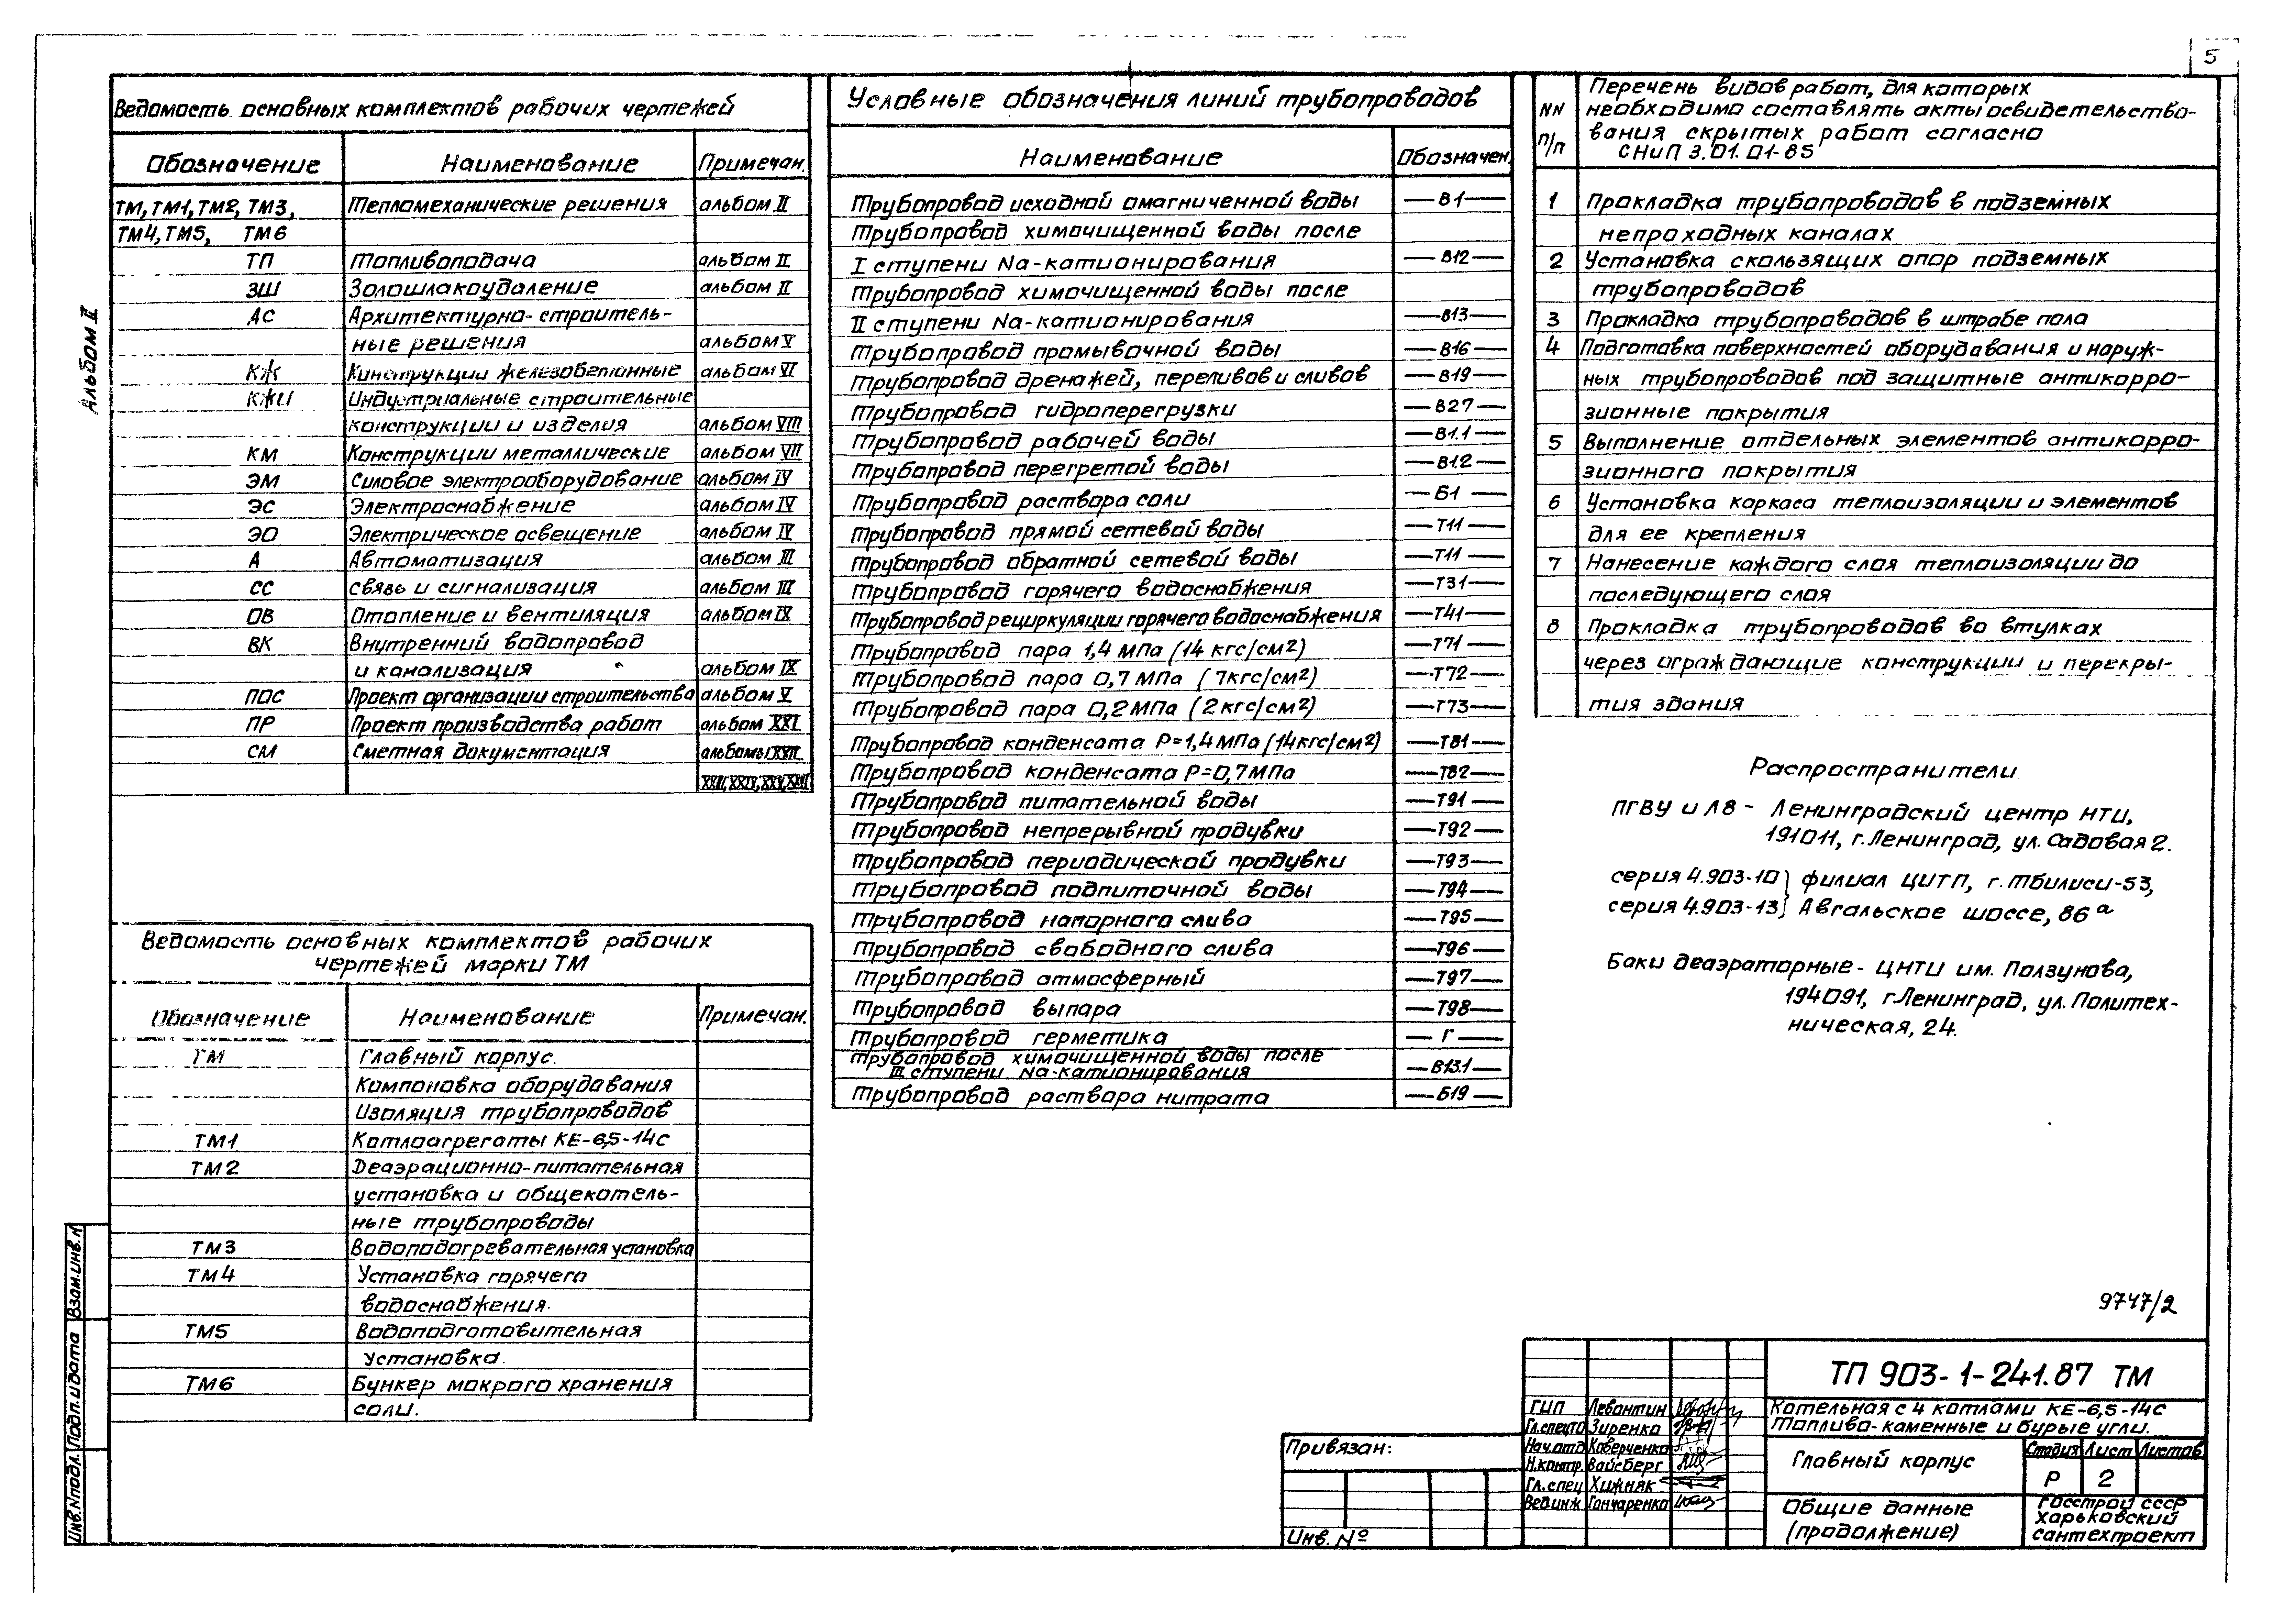 5
Альбом II
Ведомость основных комплектов рабочих чертежей
Обозначение Наименование Примечан.
ТМ, ТМ1, ТМ2, ТМ3, Тепломеханические решения альбом II
ТМ4, ТМ5, ТМ6
ТП Топливоподача альбом II
ЗШ Золошлакоудаление альбом II
АС Архитектурно-строитель-
ные решения альбом V
КЖ Конструкции железобетонные альбом VI
КЖИ Индустриальные строительные
конструкции и изделия альбом VIII
КМ Конструкции металлические альбом VII
ЭМ Силовое электрооборудование альбом IV
ЭС Электроснабжение альбом IV
ЭО Электрическое освещение альбом IV
А Автоматизация альбом III
СС связь и сигнализация альбом III
ОВ Отопление и вентиляция альбом IX
ВК Внутренний водопровод
и канализация альбом IX
ПОС Проект организации строительства альбом V
ПР Проект производства работ альбом XXI
СМ Сметная документация альбомы XXII
Ведомость основных комплектов рабочих
чертежей марки ТМ
Обозначение Наименование Примечан.
ТМ Главный корпус.
Компоновка оборудования
Изоляция трубопроводов
ТМ1 Котлоагрегаты КЕ-6,5-14с
ТМ2 Деаэрационно-питательная
установка и общекотель-
ные трубопроводы
ТМ3 Водоподогревательная установка
ТМ4 Установка горячего
водоснабжения.
ТМ5 Водоподготовительная
установка.
ТМ6 Бункер мокрого хранения
соли.
Условные обозначения линий трубопроводов
Наименование Обозначен.
Трубопровод исходной омагниченной воды —В1—
Трубопровод химочищенной воды после
I ступени Na-катионирования —В12—
Трубопровод химочищенной воды после
II ступени Na-катионирования —В13—
Трубопровод промывочной воды —В16—
Трубопровод дренажей, переливов и сливов —В19—
Трубопровод гидроперегрузки —В27—
Трубопровод рабочей воды —В1.1—
Трубопровод перегретой воды —В1.2—
Трубопровод раствора соли —Б1—
Трубопровод прямой сетевой воды —Т11—
Трубопровод обратной сетевой воды —Т11—
Трубопровод горячего водоснабжения —Т31—
Трубопровод рециркуляции горячего водоснабжения —Т41—
Трубопровод пара 1,4 МПа (14 кгс/см²) —Т71—
Трубопровод пара 0,7 МПа (7кгс/см²) —Т72—
Трубопровод пара 0,2 МПа (2кгс/см²) —Т73—
Трубопровод конденсата Р=1,4 МПа (14кгс/см²) —Т81—
Трубопровод конденсата Р=0,7 МПа —Т82—
Трубопровод питательной воды —Т91—
Трубопровод непрерывной продувки —Т92—
Трубопровод периодической продувки —Т93—
Трубопровод подпиточной воды —Т94—
Трубопровод напорного слива —Т95—
Трубопровод свободного слива —Т96—
Трубопровод атмосферный —Т97—
Трубопровод выпара —Т98—
Трубопровод герметика —Г—
Трубопровод химочищенной воды после
III ступени Na-катионирования —В13.1—
Трубопровод раствора нитрата —Б19—
NN п/п
Перечень видов работ, для которых
необходимо составлять акты освидетельство-
вания скрытых работ согласно
СНиП 3.01.01-85
1 Прокладка трубопроводов в подземных
непроходных каналах
2 Установка скользящих опор подземных
трубопроводов
3 Прокладка трубопроводов в штрабе пола
4 Подготовка поверхностей оборудования и наруж-
ных трубопроводов под защитные антикорро-
зионные покрытия
5 Выполнение отдельных элементов антикорро-
зионного покрытия
6 Установка каркаса теплоизоляции и элементов
для ее крепления
7 Нанесение каждого слоя теплоизоляции до
последующего слоя
8 Прокладка трубопроводов во втулках
через ограждающие конструкции и перекры-
тия здания
Распространители.
ПГВУ и Л8 - Ленинградский центр НТИ,
191011, г. Ленинград, ул. Садовая 2.
серия 4.903-10 } филиал ЦИТП, г. Тбилиси-53,
серия 4.903-13 } Авгальское шоссе, 86 а
Баки деаэраторные - ЦНТИ им. Ползунова,
194091, г. Ленинград, ул. Политех-
ническая, 24.
9747/2
ТП 903-1-241.87 ТМ
Котельная с 4 котлами КЕ-6,5-14с
Топливо-каменные и бурые угли.
ГИП Левантин
Гл.спец.то Зиренко
Нач.отд Коверченко
Н.контр. Вайсберг
Гл.спец Хижняк
Вед.инж Гончаренко
Главный корпус
Стадия Лист Листов
Р 2
Общие данные
(продолжение)
Госстрой СССР
Харьковский
сантехпроект
Привязан:
Инв. №
Взам.инв.N
Подп. и дата
Инв.N подл.